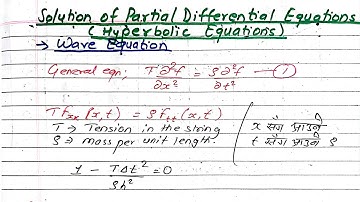 Solution of Partial Differential Equations
(Hyperbolic Equations)
→ Wave Equation
General eqn; T ∂²f/∂x² = ρ ∂²f/∂t² —(1)
T fxx (x,t) = ρ ftt (x,t)
T → Tension in the string
ρ → mass per unit length.
x सँग आउने
t सँग आउने ρ
1 - TΔt²/ρh² = 0